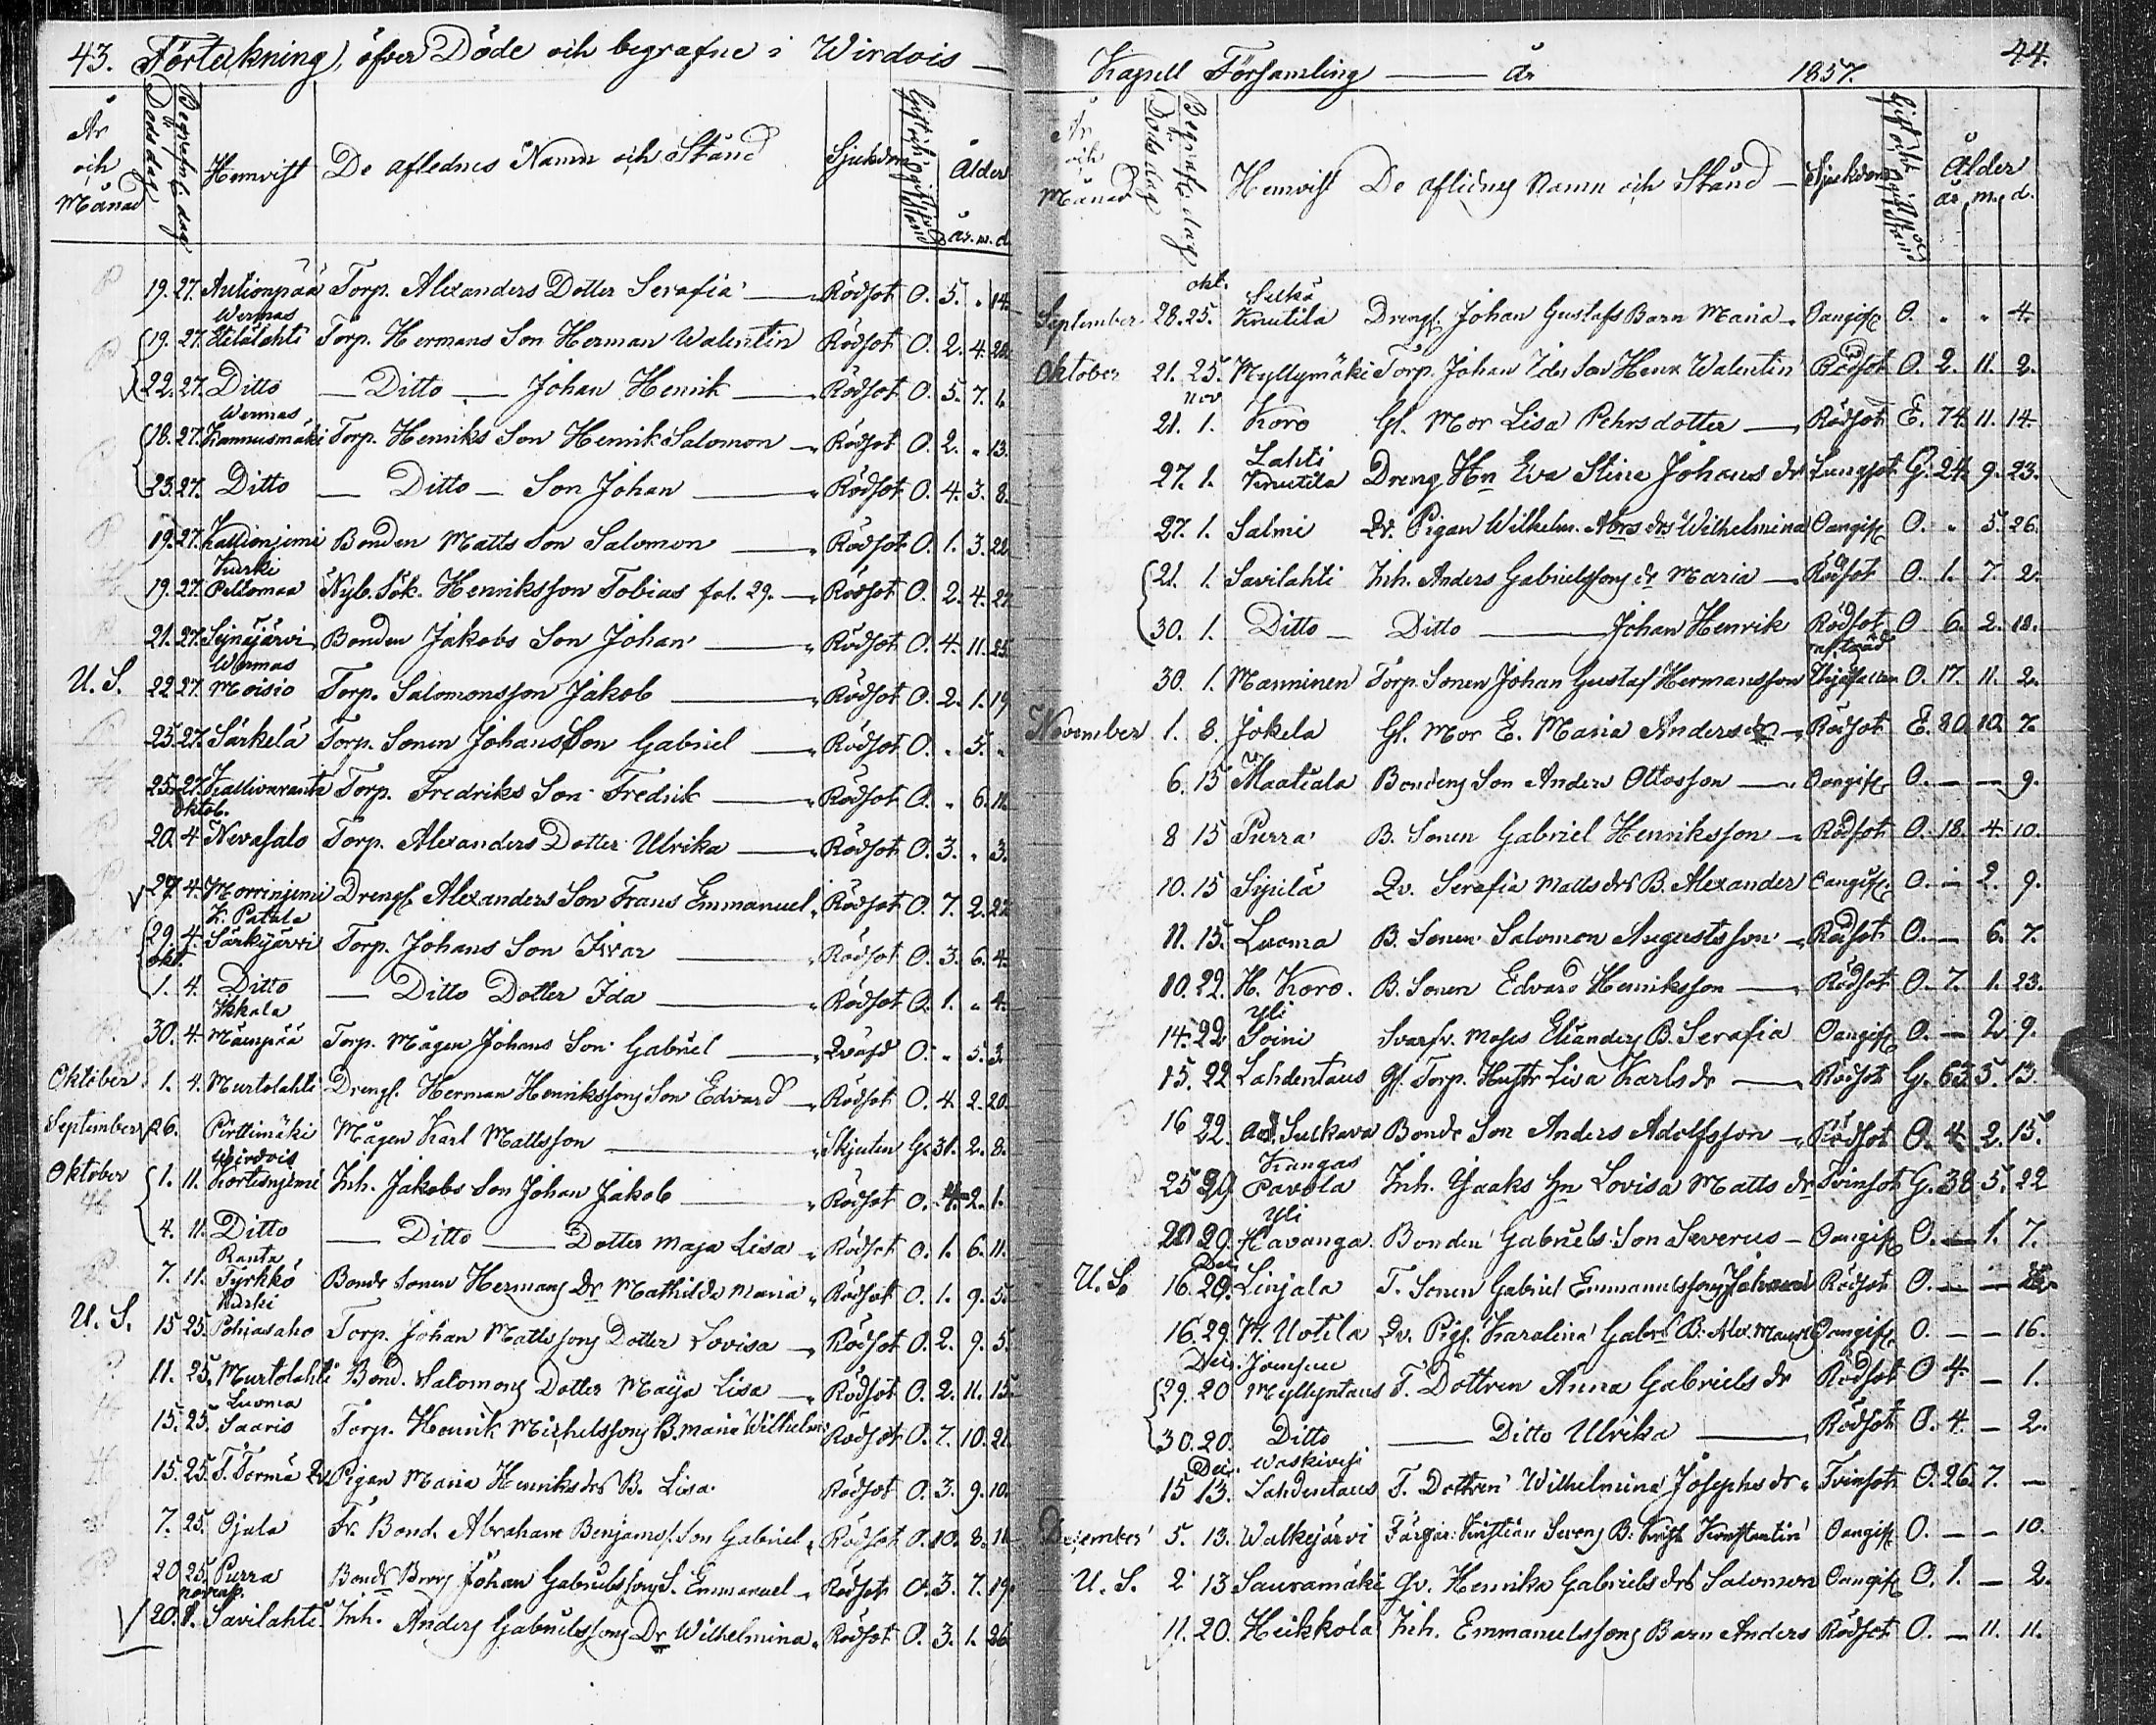 43. Förtekning öfver Döde och begrafne i Wirdois
År och Månad Döds dag Begrafn:s dag Hemvist De aflednes Namn och Stånd Sjukdom Gift och Ogift Stånd Ålder år. m. d.
19. 27. Autionpää Torp. Alexanders Dotter Serafia Rödsot O. 5. " 14.
Wermas
19. 27. Hetalahti Torp. Hermans Son Herman Walentin Rödsot O. 2. 4.
22. 27. Ditto Ditto Johan Henrik Rödsot O. 5. 7.
Wermas
18. 27. Kannusmäki Torp. Henriks Son Henrik Salomon Rödsot O. 2. " 13.
23. 27. Ditto Ditto Son Johan Rödsot O. 4. 3. 8.
19. 27. Kallionjemi Bonden Matts Son Salomon Rödsot O. 1. 3. 22.
Kurki
19. 27. Peltomaa Nyb. Sök. Henriksson Tobias fol. 29. Rödsot O. 2. 4. 27.
21. 27. Seinäjärvi Bonden Jakobs Son Johan Rödsot O. 4. 11. 25.
Wermas
U. S. 22. 27. Moisio Torp. Salomonsson Jakob Rödsot O. 2. 1. 19
25. 27. Särkelä Torp. Sonen Johans Son Gabriel Rödsot O. " 5. "
25. 27. Kallioranta Torp. Fredriks Son Fredrik Rödsot O. " 6. 12.
Oktob.
20. 4 Nevasalo Torp. Alexanders Dotter Ulrika Rödsot O. 3. " 3.
27. 4. Morrinjemi Drengs. Alexanders Son Frans Emmanuel Rödsot O. 7. 2. 27.
K. Patala
29. 4. Särkijärvi Torp. Johans Son Iwar Rödsot O. 3. 6. 4.
okt.
1. 4. Ditto Ditto Dotter Ida Rödsot O. 1. " 4.
Ikkala
30. 4. Mäenpää Torp. Mågen Johans Son Gabriel O. " 5. 3.
Oktober 1. 4. Murtolahti Drengs. Herman Henrikssons Son Edvard Rödsot O. 4. 2. 20.
September 26. Pirttimäki Mågen Karl Mattsson Skjuten G. 31. 2. 8.
Wirdois
Oktober 1. 11. Kortesnjemi Inh. Jakobs Son Johan Jakob Rödsot O. 4. 2. 1.
4. 11. Ditto Ditto Dotter Maja Lisa Rödsot O. 1. 6. 11.
Ranta
7. 11. Tyrkkö Bonde Sonen Hermans Dr Mathilda Maria Rödsot O. 1. 9. 5.
Kurki
U. S. 15 25. Pohjasaho Torp. Johan Mattssons Dotter Lovisa Rödsot O. 2. 9. 5.
11. 25. Murtolahti Bond. Salomons Dotter Maija Lisa Rödsot O. 2. 11. 15.
Luoma
15. 25. Saaris Torp. Henrik Michelssons B. Maria Wilhelm: Rödsot O. 7. 10. 21.
15. 25. T. Törmä Qv. Pigan Maria Henriksdrs B. Lisa Rödsot O. 3. 9. 10.
7. 25. Ojala Fr. Bond. Abraham Benjams. Son Gabriel Rödsot O. 10. 8.
20 25. Purra Bonde Brors Johan Gabrielssons S. Emmanuel Rödsot O. 3. 7. 19.
20. 1. Savilahti Inh. Anders Gabrielssons Dr Wilhelmina Rödsot O. 3. 1. 26
44.
Kapell Församling År 1857.
År och Månad Döds dag Begrafn: dag Hemvist De aflidnes Namn och Stånd Sjukdom Gift och Ogift Stånd Ålder år. m. d.
okt. Sulka
September 28. 25. Knutila Drengs. Johan Gustafs Barn Maria Oangifv O. " " 4.
Oktober 21. 25. Myllymäki Torp. Johan Son Henr Walentin Rödsot O. 2. 11. 2.
nov
21. 1. Koro Gl. Mor Lisa Pehrsdotter Rödsot E. 74. 11. 14.
Lahti
27. 1. Knutila Dreng Hn Eva Stina Johans dr Lungsot G. 24. 9. 23.
27. 1. Salmi Qv. Pigan Wilhelm. Abrs drs Wilhelmina Oangifv O. " 5. 26.
21. 1. Savilahti Inh. Anders Gabrielssons dr Maria Rödsot O. 1. 7. 2.
30. 1. Ditto Ditto Johan Henrik Rödsot O 6. 2. 18.
30. 1. Manninen Torp. Sonen Johan Gustaf Hermansson O. 17. 11. 2.
November 1. 8. Jokela Gl. Mor E. Maria Anders dr Rödsot E. 80. 10. 7.
6. 15 Maatiala Bondens Son Anders Ottosson Oangifv O. — — 9.
8 15 Purra B. Sonen Gabriel Henriksson Rödsot O. 18. 4. 10.
10. 15 Sipilä Qv. Serafia Matts drs B. Alexander Oangifv O. — 2. 9.
11. 15. Luoma B. Sonen Salomon Augustsson Rödsot O. — 6. 7.
10. 22. H. Koro. B. Sonen Edvard Henriksson Rödsot O. 7. 1. 23.
Yli
14. 22 Soini Svarfv. Moses Elianders B. Serafia Oangifv O. — 2. 9.
15. 22 Lahdentaus Gl. Torp. Hustr Lisa Karls dr Rödsot G. 63. 5. 13.
16 22. Ad. Sulkava Bonde Son Anders Adolfsson Rödsot O. 4. 2. 15.
Kangas
25 29. Pavola Inh. Isaaks Hn Lovisa Matts dr Tvinsot G. 38. 5. 22
Yli
20 29. Havanga Bonden Gabriels Son Severus Oangifv O. — 1. 7.
Dec.
U. S. 16. 29. Linjala T. Sonen Gabriel Emmanuelssons Johan Rödsot O. — —
16. 29. W. Uotila Qv. Pigs. Karolina Gabrs B. Alex. Maurits Oangifv O. — — 16.
Dec. Jouhsuu
29. 20 Myllyntaus T. Dottren Anna Gabriels dr Rödsot O 4. — 1.
30. 20. Ditto Ditto Ulrika Rödsot O. 4. — 2.
Dec. Waskivesi
15 13. Lahdentaus T. Dottren Wilhelmina Josephs dr Tvinsot O. 26. 7. —
December 5. 13. Walkejärvi Färgar: Kristian Svens B. Konstantin Oangifv O. — — 10.
U. S. 2 13 Sauramäki Qv. Henrika Gabriels drs Salomon Oangifv O. 1. — 2.
11. 20. Heikkola Inh. Emmanuelssons Barn Anders Rödsot O. — 11. 11.